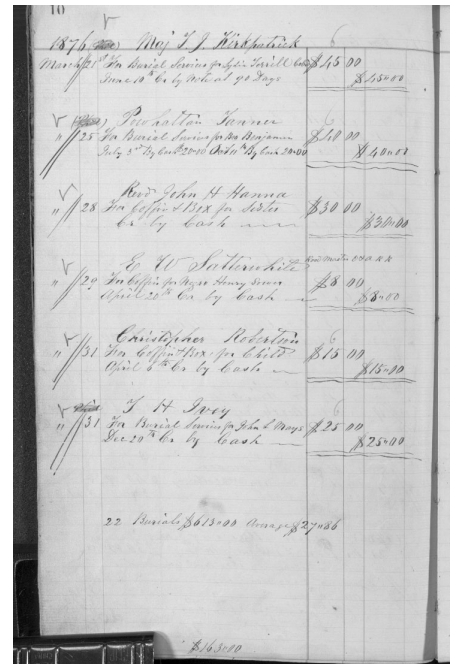 10
1876 Maj T. J. Kirkpatrick
March 21st For Burial Service for Lydia Terrill $45 00
June 10th Cr by Note at 90 Days $45=00
Powhattan Tanner
" 25 For Burial Service for Benjamin $40 00
July 3d By Cash 20=00 Oct 11th By Cash 20=00 $40=00
Revd John H Hanna
" 28 For Coffin & Box for Sister $30 00
Cr by Cash $30=00
E W Satterwhite
" 29 For Coffin for Negro Henry $8 00
April 20th Cr by Cash $8=00
Christopher Robertson
" 31 For Coffin & Box for Child $15 00
April 6th Cr by Cash $15=00
T H Ivey
" 31 For Burial Service for John L Mays $25 00
Dec 20th Cr by Cash $25=00
22 Burials $613=00 Average $27=86
$163=00